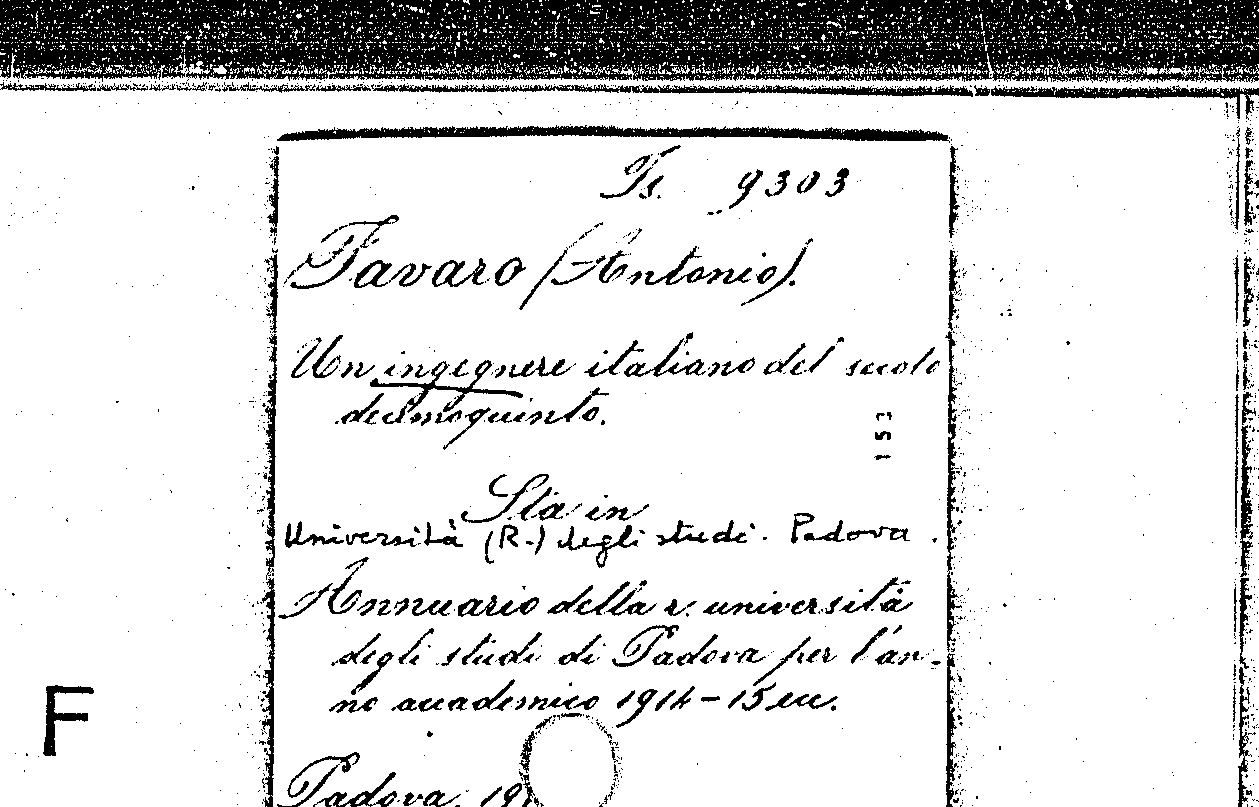 Fs. 9303
Favaro (Antonio).
Un ingegnere italiano del secolo
decimoquinto.
153
Sta in
Università (R.) degli studi. Padova.
Annuario della r. università
degli studi di Padova per l'an-
no accademico 1914-15 ecc.
F
Padova, 191